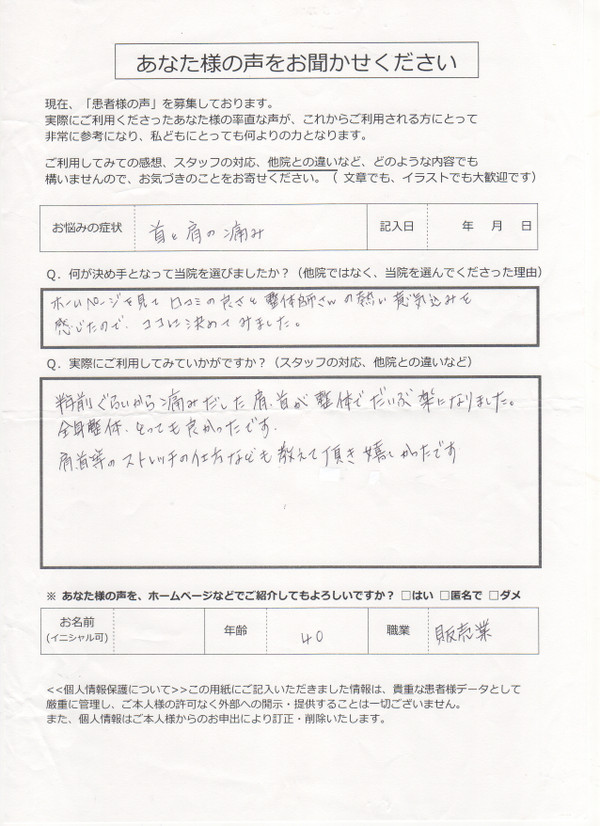 あなた様の声をお聞かせください
現在、「患者様の声」を募集しております。
実際にご利用くださったあなた様の率直な声が、これからご利用される方にとって
非常に参考になり、私どもにとっても何よりの力となります。
ご利用してみての感想、スタッフの対応、他院との違いなど、どのような内容でも
構いませんので、お気づきのことをお寄せください。（ 文章でも、イラストでも大歓迎です）
お悩みの症状 首と肩の痛み 記入日 年 月 日
Q．何が決め手となって当院を選びましたか？（他院ではなく、当院を選んでくださった理由）
ホームページを見て 口コミの良さと整体師さんの熱い意気込みを
感じたので、ココに決めてみました。
Q．実際にご利用してみていかがですか？（スタッフの対応、他院との違いなど）
半年前ぐらいから痛みだした肩、首が整体でだいぶ楽になりました。
全身整体、とっても良かったです。
肩、首等のストレッチの仕方なども教えて頂き嬉しかったです
※ あなた様の声を、ホームページなどでご紹介してもよろしいですか？ □はい □匿名で □ダメ
お名前 年齢 40 職業 販売業
(イニシャル可)
<<個人情報保護について>>この用紙にご記入いただきました情報は、貴重な患者様データとして
厳重に管理し、ご本人様の許可なく外部への開示・提供することは一切ございません。
また、個人情報はご本人様からのお申出により訂正・削除いたします。